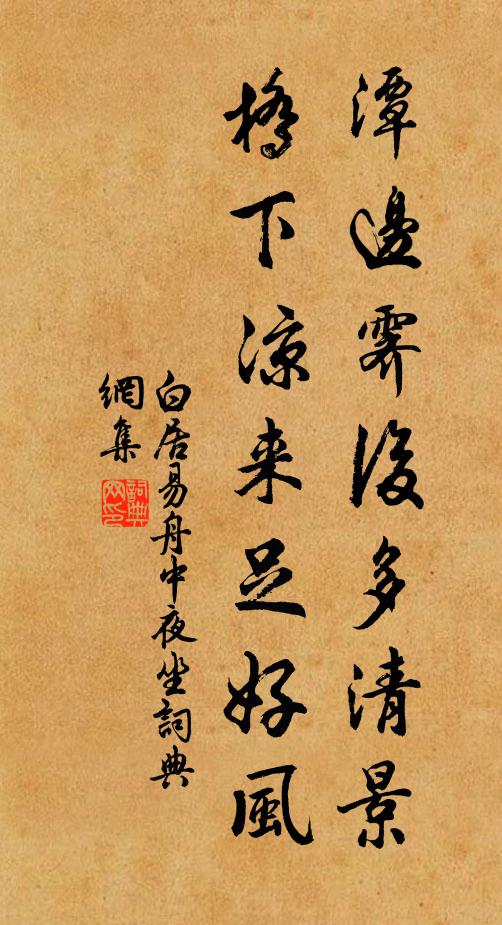 潭邊霽後多清景
橋下涼来足好風
白居易舟中夜坐詞典
網集
詞典
网印